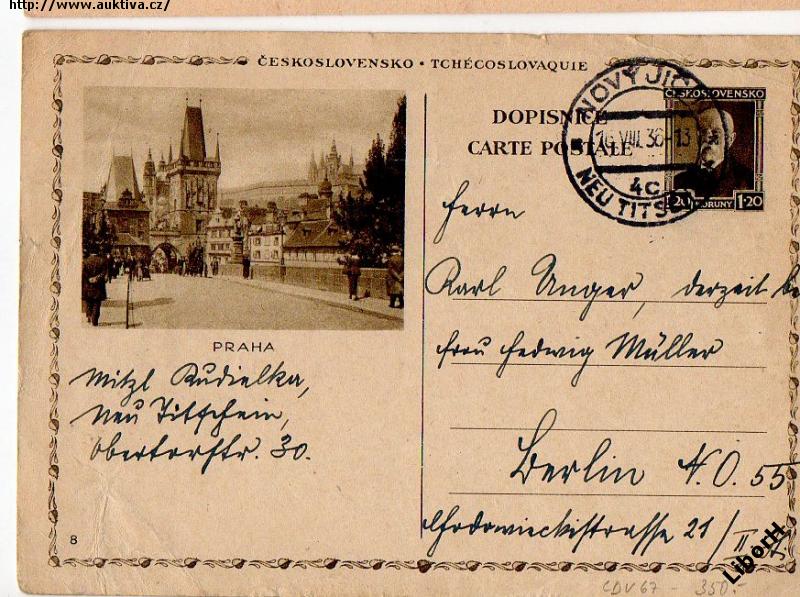 http://www.auktiva.cz/
ČESKOSLOVENSKO • TCHÉCOSLOVAQUIE
DOPISNICE
CARTE POSTALE
NOVÝ JIČ
16.VIII.36-13
4c
NEU TITSC
ČESKOSLOVENSKO
1·20 KORUNY 1·20
PRAHA
Mitzl Kudielka,
Neu Titschein,
Obertorstr. 30.
Herrn
Karl Unger, derzeit be
Frau Hedwig Müller
Berlin N.O. 55
Chodowieckistrasse 21/II
8
CDV 67 - 350.-
LiborH